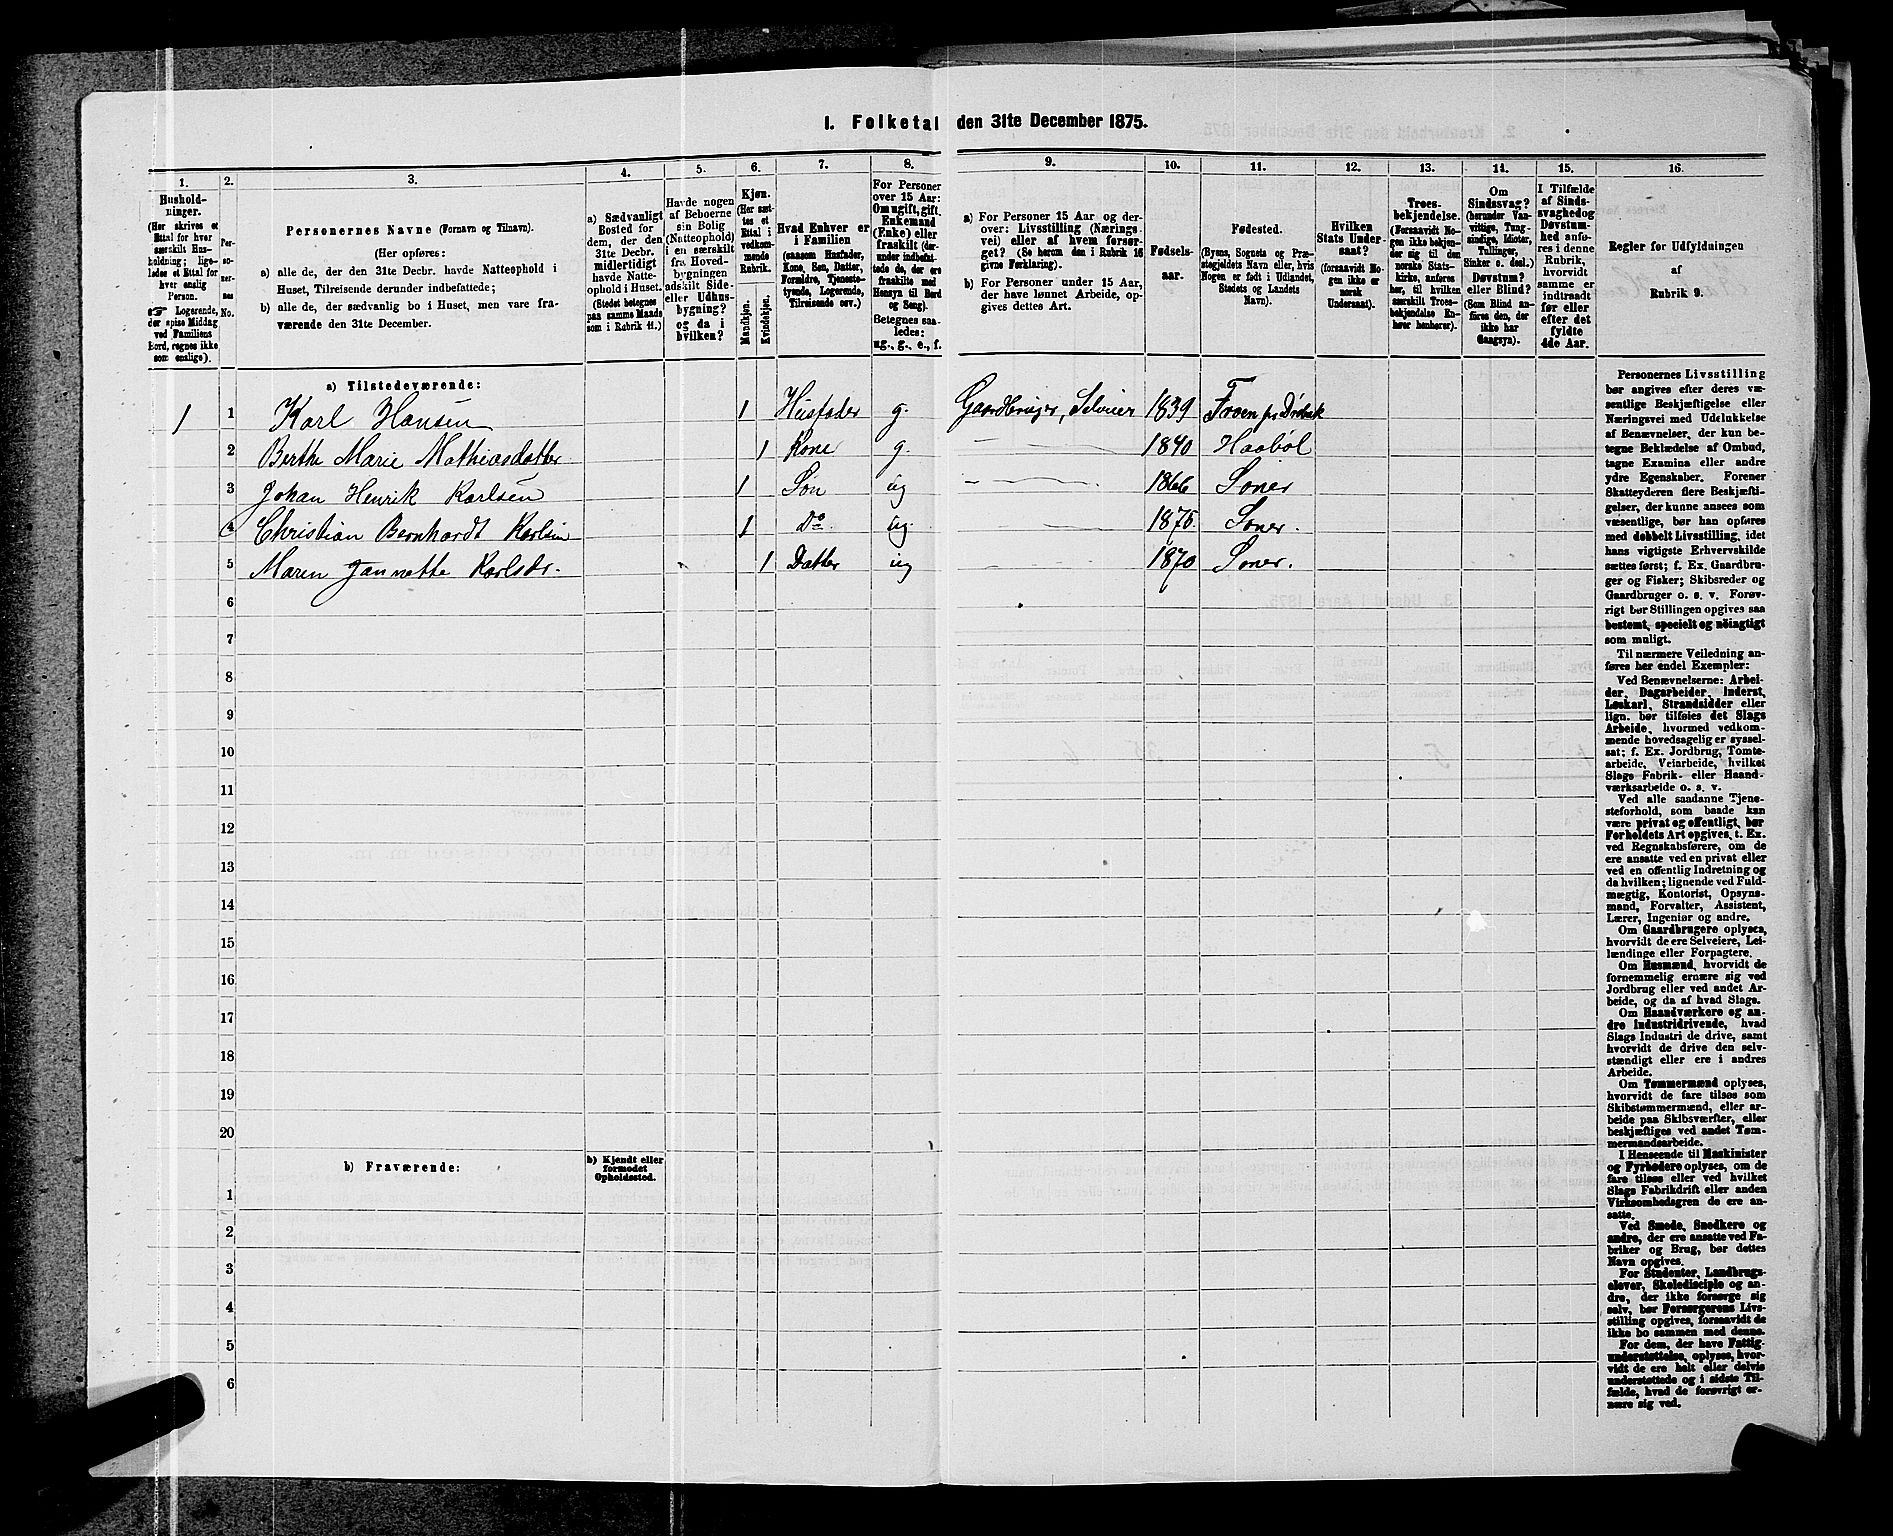 1. Folketal den 31te December 1875.
1.
2.
3.
4.
5.
6.
7.
8.
9.
10.
11.
12.
13.
14.
15.
16.
Hushold-
ninger.
(Her skrives et
Ettal for hver
særskilt Hus-
holdning; lige-
ledes et Ettal for
hver enslig
Person.
☞ Logerende,
der spise Middag
ved Familiens
Bord, regnes ikke
som enslige).
Per-
so-
ner-
nes
No.
Personernes Navne (Fornavn og Tilnavn).
(Her opføres:
a) alle de, der den 31te Decbr. havde Natteophold i
Huset, Tilreisende derunder indbefattede;
b) alle de, der sædvanlig bo i Huset, men vare fra-
værende den 31te December.
a) Sædvanligt
Bosted for
dem, der den
31te Decbr.
midlertidigt
havde Natte-
ophold i Huset.
(Stedet betegnes
paa samme Maade
som i Rubrik 11.)
Havde nogen
af Beboerne
sin Bolig
(Natteophold)
i en særskilt
fra Hoved-
bygningen
adskilt Side-
eller Udhus-
bygning?
og da i
hvilken?
Kjøn.
(Her sæt-
tes et
Ettal i
vedkom-
mende
Rubrik.)
Mandkjøn.
Kvindekjøn.
Hvad Enhver er
i Familien
(saasom Husfader,
Kone, Søn, Datter,
Forældre, Tjeneste-
tyende, Logerende,
Tilreisende osv.)
For Personer
over 15 Aar:
Om ugift, gift,
Enkemand
(Enke) eller
fraskilt (der-
under indbefat-
tede de, der ere
fraskilte med
Hensyn til Bord
og Seng).
Betegnes saa-
ledes:
ug., g., e., f.
a) For Personer 15 Aar og der-
over: Livsstilling (Nærings-
vei) eller af hvem forsør-
get? (Se herom den i Rubrik 16
givne Forklaring).
b) For Personer under 15 Aar,
der have lønnet Arbeide, op-
gives dettes Art.
Fødsels-
aar.
Fødested.
(Byens, Sognets og Præ-
stegjeldets Navn eller, hvis
Nogen er født i Udlandet,
Stedets og Landets
Navn).
Hvilken
Stats Under-
saat?
(forsaavidt No-
gen ikke er
norsk
Undersaat).
Troes-
bekjendelse.
(Forsaavidt No-
gen ikke bekjen-
der sig til den
norske Stats-
kirke, anføres
her, til hvilken
særskilt Troes-
bekjendelse En-
hver henhører).
Om
Sindssvag?
(herunder Van-
vittige, Tung-
sindige, Idioter,
Tullinger,
Sinker o. desl.)
Døvstum?
eller Blind?
(Som Blind an-
føres den, der
ikke har
Gangsyn).
I Tilfælde
af Sinds-
svaghed og
Døvstum-
hed anfø-
res i denne
Rubrik,
hvorvidt
samme er
indtraadt
før eller
efter det
fyldte
4de Aar.
Regler for Udfyldningen
af
Rubrik 9.
a) Tilstedeværende:
1 1 Karl Hansen 1 Husfader g. Gaardbruger, Selveier 1839 Froen pr Drøbak
2 Berthe Marie Mathiasdatter 1 Kone g. 1840 Haabøl
3 Johan Henrik Karlsen 1 Søn ug 1866 Soner
4 Christian Bernhardt Karlsen 1 Do ug. 1875 Soner.
5 Maren Jannette Karlsdr. 1 Datter ug 1870 Soner.
6
7
8
9
10
11
12
13
14
15
16
17
18
19
20
b) Fraværende:
b) Kjendt eller
formodet
Opholdssted.
1
2
3
4
5
6
Personernes Livsstilling
bør angives efter deres væ-
sentlige Beskjæftigelse eller
Næringsvei med Udelukkelse
af Benævnelser, der kun be-
tegne Beklædelse af Ombud,
tagne Examina eller andre
ydre Egenskaber. Forener
Skatteyderen flere Beskjæfti-
gelser, der kunne ansees som
væsentlige, bør han opføres
med dobbelt Livsstilling, idet
hans vigtigste Erhvervskilde
sættes først; f. Ex. Gaardbru-
ger og Fisker; Skibsreder og
Gaardbruger o. s. v. Forøv-
rigt bør Stillingen opgives saa
bestemt, specielt og nøiagtigt
som muligt.
Til nærmere Veiledning an-
føres her endel Exempler:
Ved Benævnelserne: Arbei-
der, Dagarbeider, Inderst,
Løskarl, Strandsidder eller
lign. bør tilføies det Slags
Arbeide, hvormed vedkom-
mende hovedsagelig er syssel-
sat; f. Ex. Jordbrug, Tomte-
arbeide, Veiarbeide, hvilket
Slags Fabrik- eller Haand-
værksarbeide o. s. v.
Ved alle saadanne Tjene-
steforhold, som baade kan
være privat og offentligt, bør
Forholdets Art opgives, t. Ex.
ved Regnskabsførere, om de
ere ansatte ved en privat eller
ved en offentlig Indretning og
da hvilken; lignende ved Fuld-
mægtig, Kontorist, Opsyns-
mand, Forvalter, Assistent,
Lærer, Ingeniør og andre.
Om Gaardbrugere oplyses,
hvorvidt de ere Selveiere, Lei-
lændinge eller Forpagtere.
Om Husmænd, hvorvidt de
fornemmelig ernære sig ved
Jordbrug eller ved andet Ar-
beide, og da af hvad Slags.
Om Haandværkere og an-
dre Industridrivende, hvad
Slags Industri de drive, samt
hvorvidt de drive den selv-
stændigt eller ere i andres
Arbeide.
Om Tømmermænd oplyses,
hvorvidt de fare tilsøs som
Skibstømmermænd, eller ar-
beide paa Skibsværfter, eller
beskjæftiges ved andet Tøm-
mermandsarbeide.
I Henseende til Maskinister
og Fyrbødere oplyses, om de
fare tilsøs eller ved hvilket
Slags Fabrikdrift eller anden
Virksomhedsgren de ere an-
satte.
Ved Smede, Snedkere og
andre, der ere ansatte ved Fa-
briker og Brug, bør dettes
Navn opgives.
For Studenter, Landbrugs-
elever, Skoledisciple og an-
dre, der ikke forsørge sig
selv, bør Forsørgerens Livs-
stilling opgives, forsaavidt de
ikke bo sammen med denne.
For dem, der have Fattig-
understøttelse, oplyses, hvor-
vidt de ere helt eller delvis
understøttede og i sidste Til-
fælde, hvad de forøvrigt er-
nære sig ved.